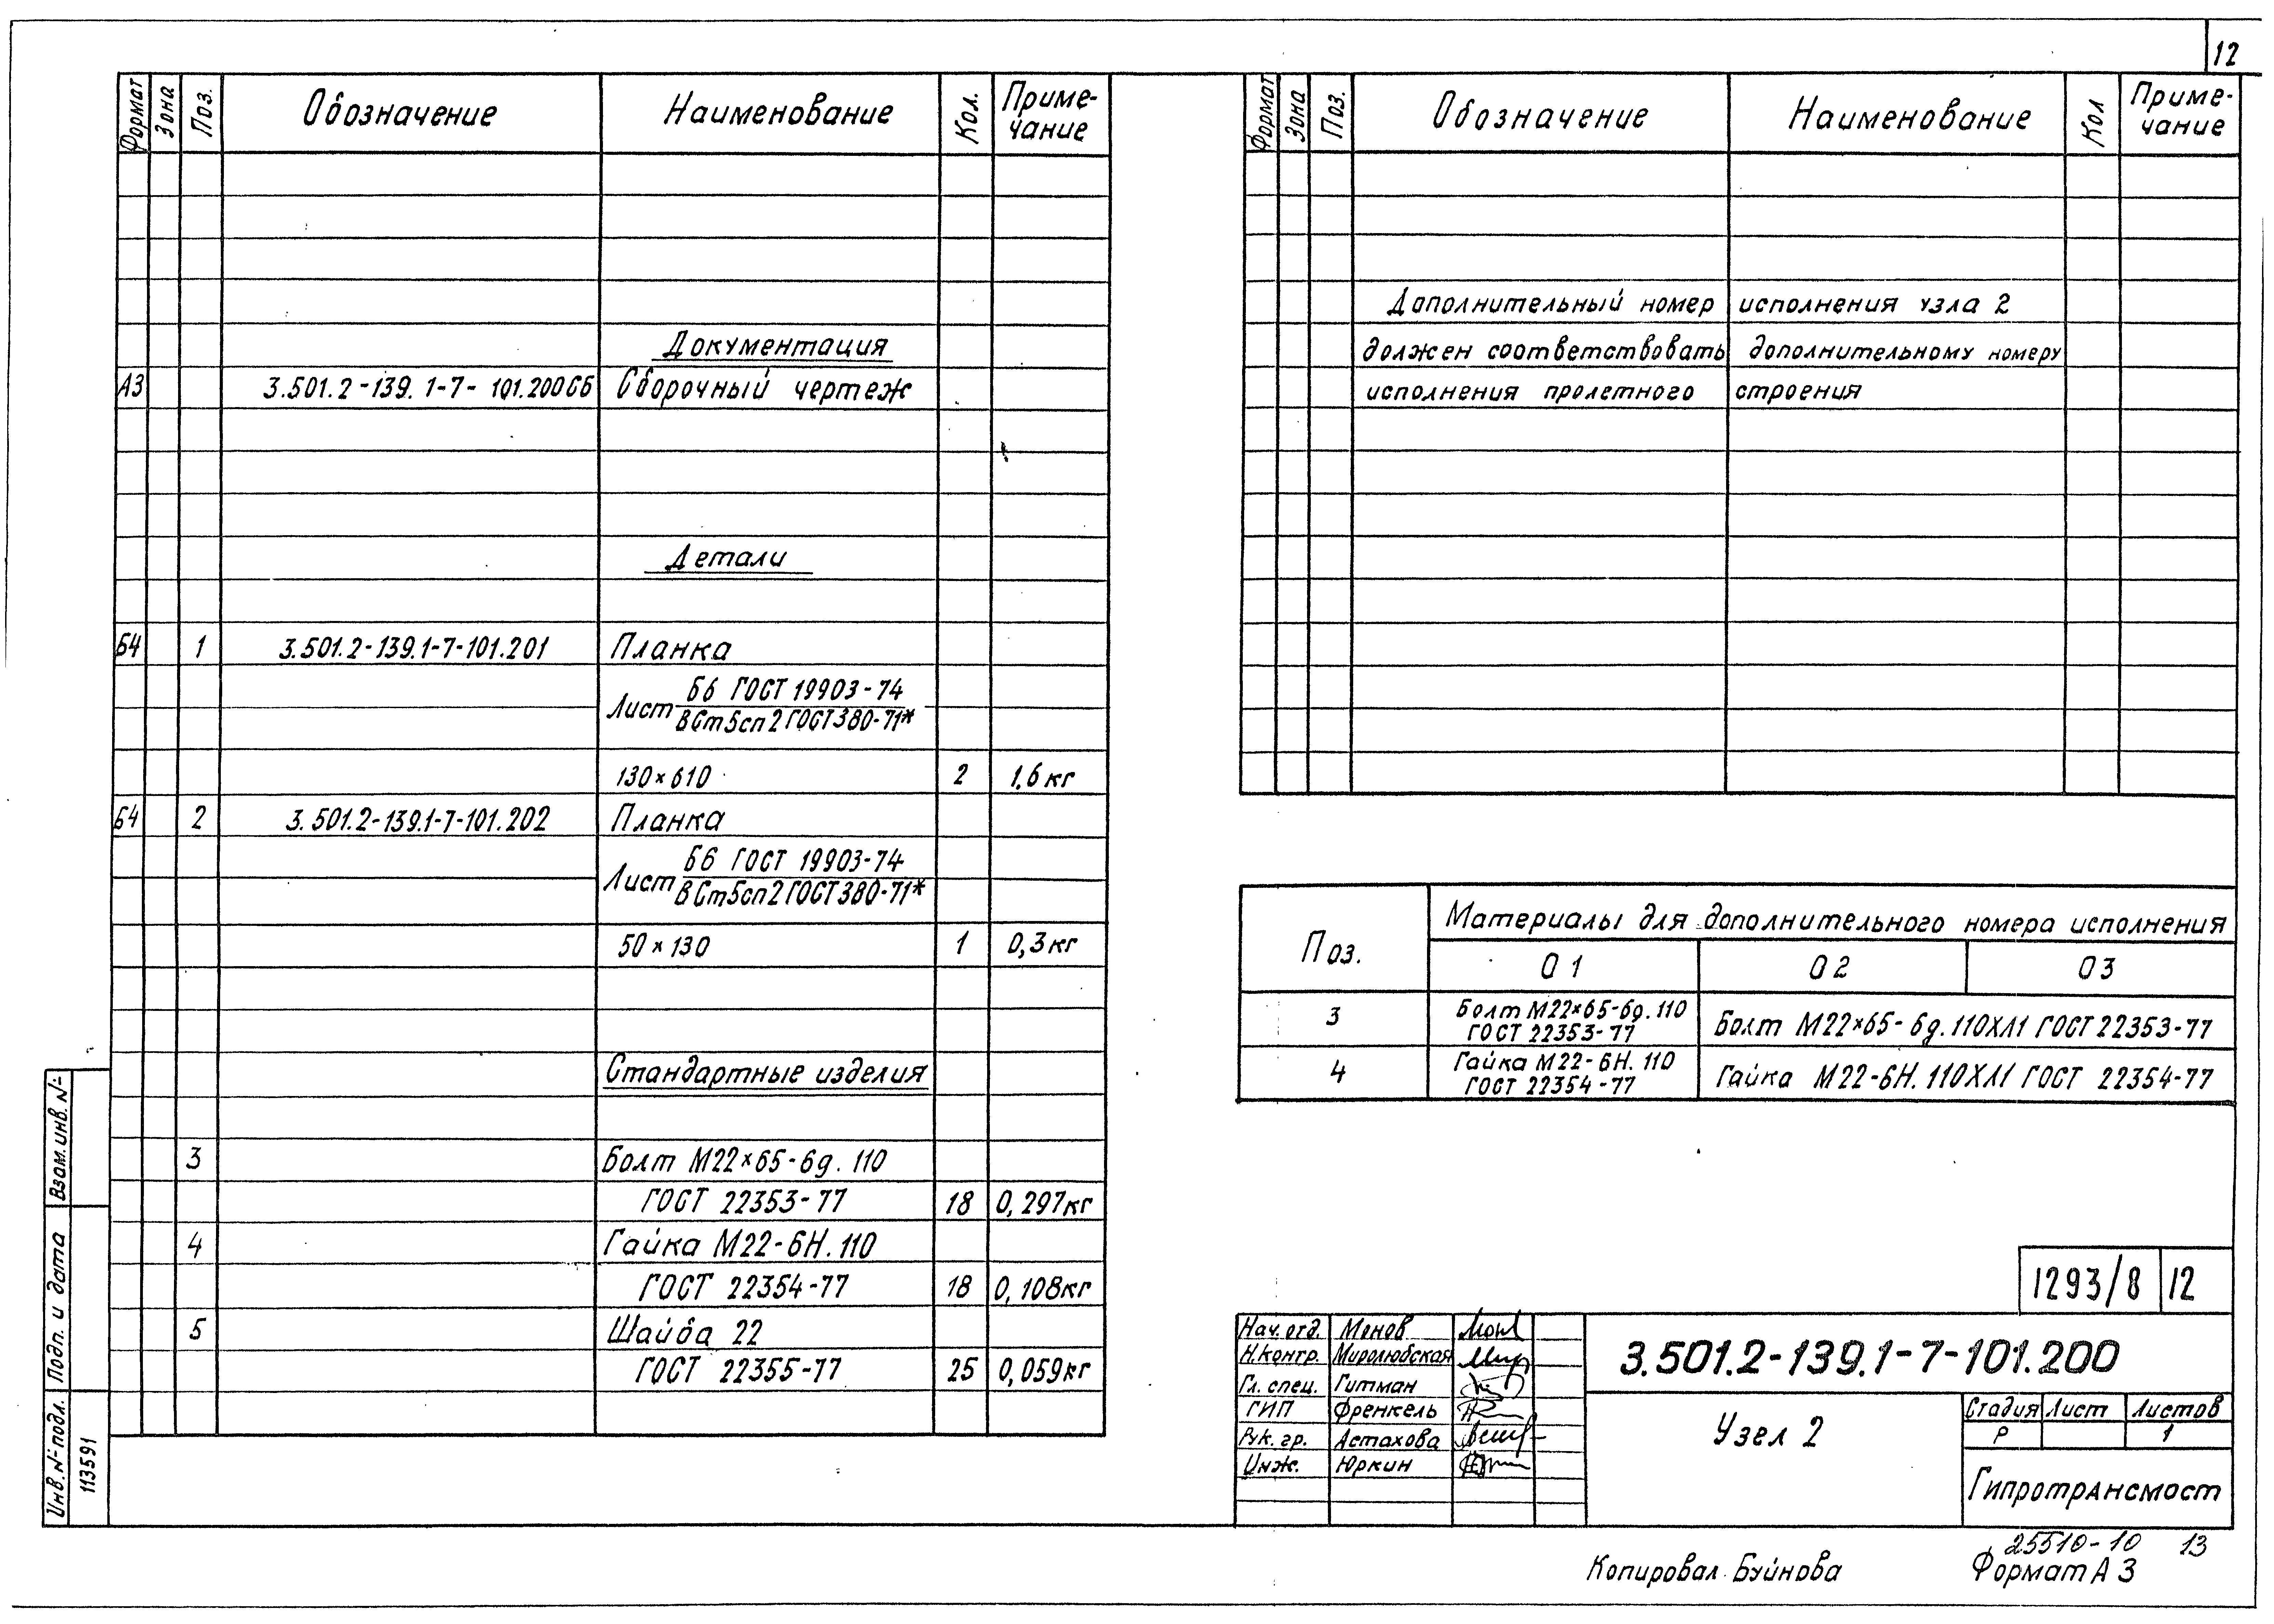 12
Формат Зона Поз. Обозначение Наименование Кол. Приме-
чание
Документация
А3 3.501.2-139.1-7-101.200СБ Сборочный чертеж
Детали
Б4 1 3.501.2-139.1-7-101.201 Планка
Лист Б6 ГОСТ 19903-74
ВСт5сп2 ГОСТ 380-71*
130×610 2 1,6 кг
Б4 2 3.501.2-139.1-7-101.202 Планка
Лист Б6 ГОСТ 19903-74
ВСт5сп2 ГОСТ 380-71*
50×130 1 0,3 кг
Стандартные изделия
3 Болт М22×65-6g.110
ГОСТ 22353-77 18 0,297кг
4 Гайка М22-6Н.110
ГОСТ 22354-77 18 0,108кг
5 Шайба 22
ГОСТ 22355-77 25 0,059кг
Формат Зона Поз. Обозначение Наименование Кол Приме-
чание
Дополнительный номер исполнения узла 2
должен соответствовать дополнительному номеру
исполнения пролетного строения
Поз. Материалы для дополнительного номера исполнения
01 02 03
3 Болт М22×65-6g.110
ГОСТ 22353-77
Болт М22×65-6g.110ХЛ1 ГОСТ 22353-77
4 Гайка М22-6Н.110
ГОСТ 22354-77
Гайка М22-6Н.110ХЛ1 ГОСТ 22354-77
1293/8 12
Нач. отд. Монов
Н.контр. Миролюбская
Гл. спец. Гитман
ГИП Френкель
Рук. гр. Астахова
Инж. Юркин
3.501.2-139.1-7-101.200
Узел 2
Стадия Лист Листов
Р 1
Гипротрансмост
25510-10 13
Копировал Буйнова Формат А3
Взам. инв. №
Подп. и дата
Инв. № подл.
113591